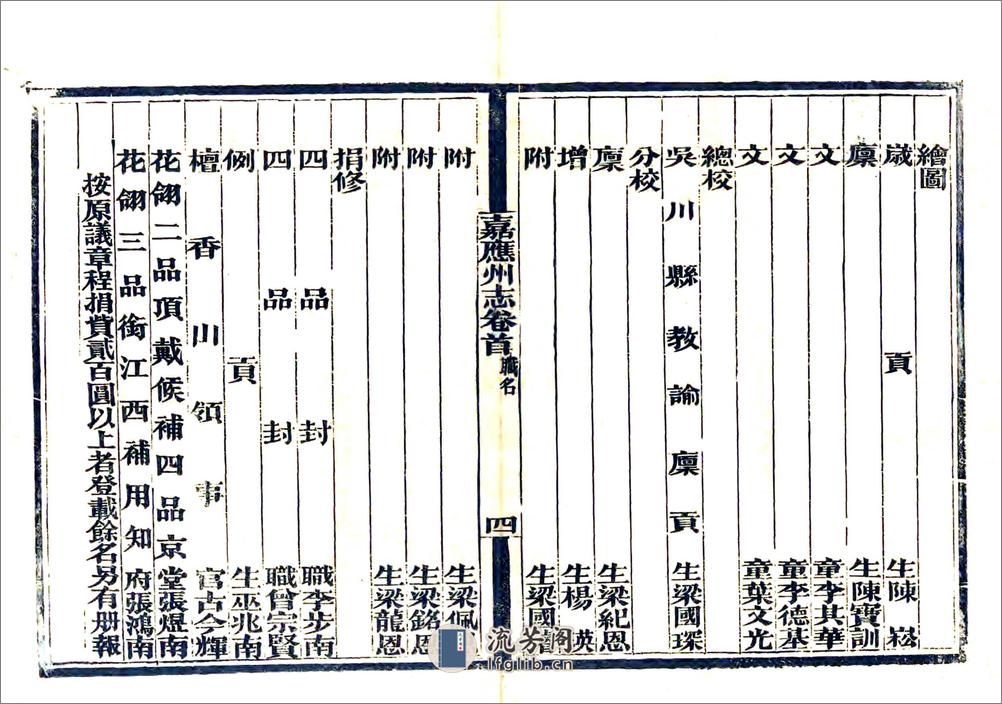 繪圖
歲貢生陳崧
廩生陳寶訓
文童李其華
文童李德基
文童葉文光
總校
吳川縣教諭廩貢生梁國琛
分校
廩生梁紀恩
增生楊
附生梁國
嘉應州志卷首 職名 四
附生梁佩
附生梁恩
附生梁龍恩
捐修
四品封職李步南
四品封職曾宗賢
例貢生巫兆南
檀香山領事官古今輝
花翎二品頂戴候補四品京堂張煜南
花翎三品銜江西補用知府張鴻南
按原議章程捐貲貳百圓以上者登載餘名另有册報
流芳阁
lfglib.cn